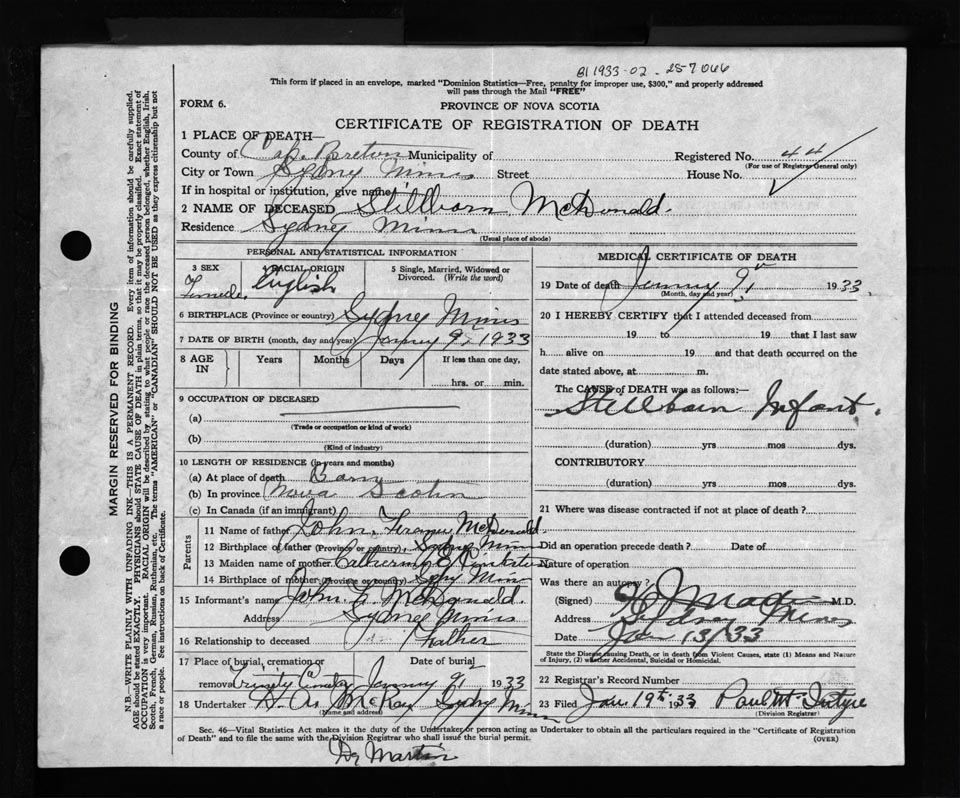 B1 1933-02-257066
This form if placed in an envelope, marked "Dominion Statistics—Free, penalty for improper use, $300," and properly addressed
will pass through the Mail "FREE"
FORM 6.
PROVINCE OF NOVA SCOTIA
CERTIFICATE OF REGISTRATION OF DEATH
1 PLACE OF DEATH—
County of Cape Breton Municipality of
Registered No. 44
(For use of Registrar General only)
City or Town Sydney Mines Street House No.
If in hospital or institution, give name
2 NAME OF DECEASED Stillborn McDonald
Residence Sydney Mines
(Usual place of abode)
PERSONAL AND STATISTICAL INFORMATION
3 SEX 4 RACIAL ORIGIN 5 Single, Married, Widowed or
Divorced. (Write the word)
Female English
6 BIRTHPLACE (Province or country) Sydney Mines
7 DATE OF BIRTH (month, day and year) January 9, 1933
8 AGE IN Years Months Days If less than one day,
hrs. or min.
9 OCCUPATION OF DECEASED
(a)
(Trade or occupation or kind of work)
(b)
(Kind of industry)
10 LENGTH OF RESIDENCE (in years and months)
(a) At place of death
(b) In province Nova Scotia
(c) In Canada (if an immigrant)
Parents
11 Name of father John McDonald
12 Birthplace of father (Province or country) Sydney Mines
13 Maiden name of mother Catherine
14 Birthplace of mother (Province or country) Sydney Mines
15 Informant's name John McDonald
Address Sydney Mines
16 Relationship to deceased Father
17 Place of burial, cremation or Date of burial
removal Trinity January 9, 1933
18 Undertaker McKay Sydney Mines
(Name and address)
MEDICAL CERTIFICATE OF DEATH
19 Date of death January 9th 1933.
(Month, day and year)
20 I HEREBY CERTIFY that I attended deceased from
19 to 19 that I last saw
h alive on 19 and that death occurred on the
date stated above, at m.
The CAUSE of DEATH was as follows:—
Stillborn Infant.
(duration) yrs mos dys.
CONTRIBUTORY
(duration) yrs mos dys.
21 Where was disease contracted if not at place of death?
Did an operation precede death? Date of
Nature of operation
Was there an autopsy?
(Signed) M.D.
Address Sydney Mines
Date Jan 13/33
State the Disease causing Death, or in death from Violent Causes, state (1) Means and Nature
of Injury, (2) whether Accidental, Suicidal or Homicidal.
22 Registrar's Record Number
23 Filed Jan. 19th 1933 Paul McIntyre
(Division Registrar)
Sec. 46—Vital Statistics Act makes it the duty of the Undertaker or person acting as Undertaker to obtain all the particulars required in the "Certificate of Registration
of Death" and to file the same with the Division Registrar who shall issue the burial permit.
(OVER)
Dr Martin
MARGIN RESERVED FOR BINDING
N.B.—WRITE PLAINLY WITH UNFADING INK—THIS IS A PERMANENT RECORD. Every item of information should be carefully supplied.
AGE should be stated EXACTLY. PHYSICIANS should STATE CAUSE OF DEATH in plain terms, so that it may be properly classified. Exact statement of
OCCUPATION is very important. RACIAL ORIGIN will be described by stating to what people or race the deceased person belonged, whether English, Irish,
Scotch, French, German, Russian, Ruthenian, etc. The terms "AMERICAN" or "CANADIAN" SHOULD NOT BE USED as they express citizenship but not
a race or people. See instructions on back of Certificate.